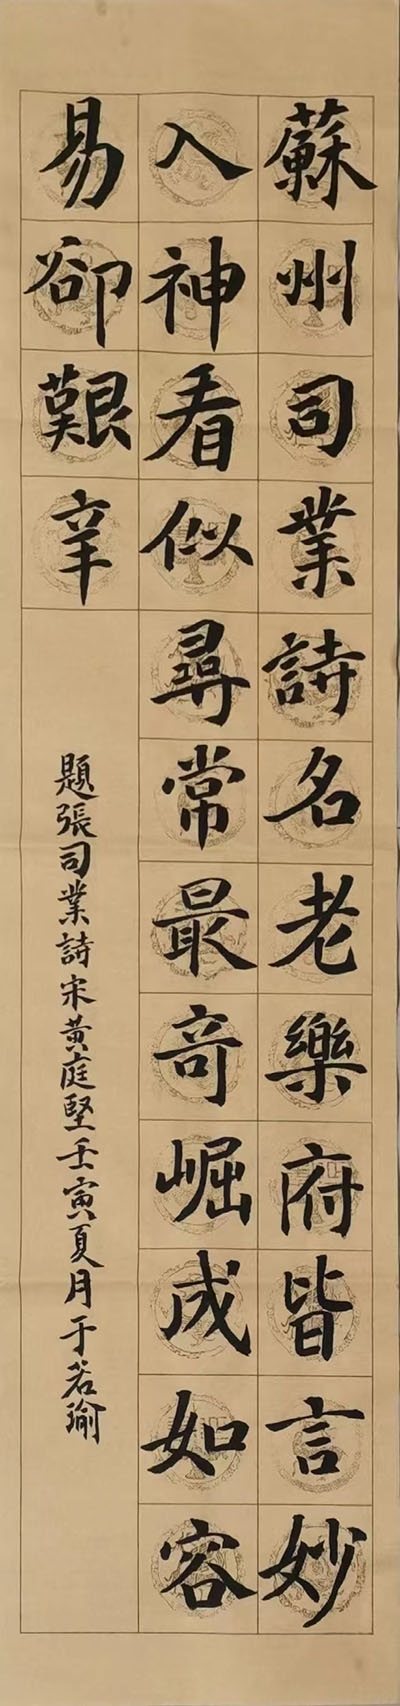 蘇州司業詩名老樂府皆言妙
入神看似尋常最奇崛成如容
易卻艱辛
題張司業詩宋黃庭堅壬寅夏月于若瑜